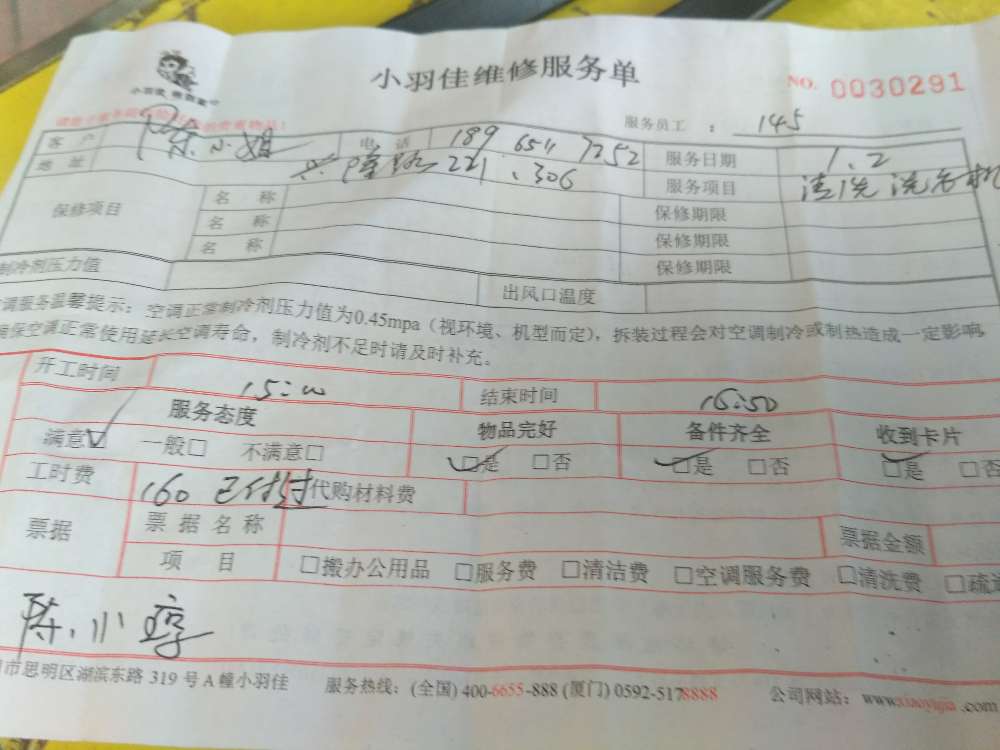 小羽佳维修服务单
NO. 0030291
服务员工 ： 145
客 户 陈小姐 电 话 189 6511 7252 服务日期 1.2
地 址 兴隆路221.306 服务项目 清洗洗衣机
保修项目 名 称 保修期限
名 称 保修期限
名 称 保修期限
制冷剂压力值 出风口温度
调服务温馨提示：空调正常制冷剂压力值为0.45mpa（视环境、机型而定），拆装过程会对空调制冷或制热造成一定影响
确保空调正常使用延长空调寿命，制冷剂不足时请及时补充。
开工时间 15:00 结束时间 16:50
服务态度 物品完好 备件齐全 收到卡片
满意☑ 一般□ 不满意□ □是 □否 □是 □否 □是 □否
工时费 160 已付 代购材料费
票据 票 据 名 称 票据金额
项 目 □搬办公用品 □服务费 □清洁费 □空调服务费 □清洗费 □疏
陈小
市思明区湖滨东路 319 号 A 幢小羽佳 服务热线：(全国) 400-6655-888 (厦门) 0592-5178888 公司网站：www.xiaoyujia.com